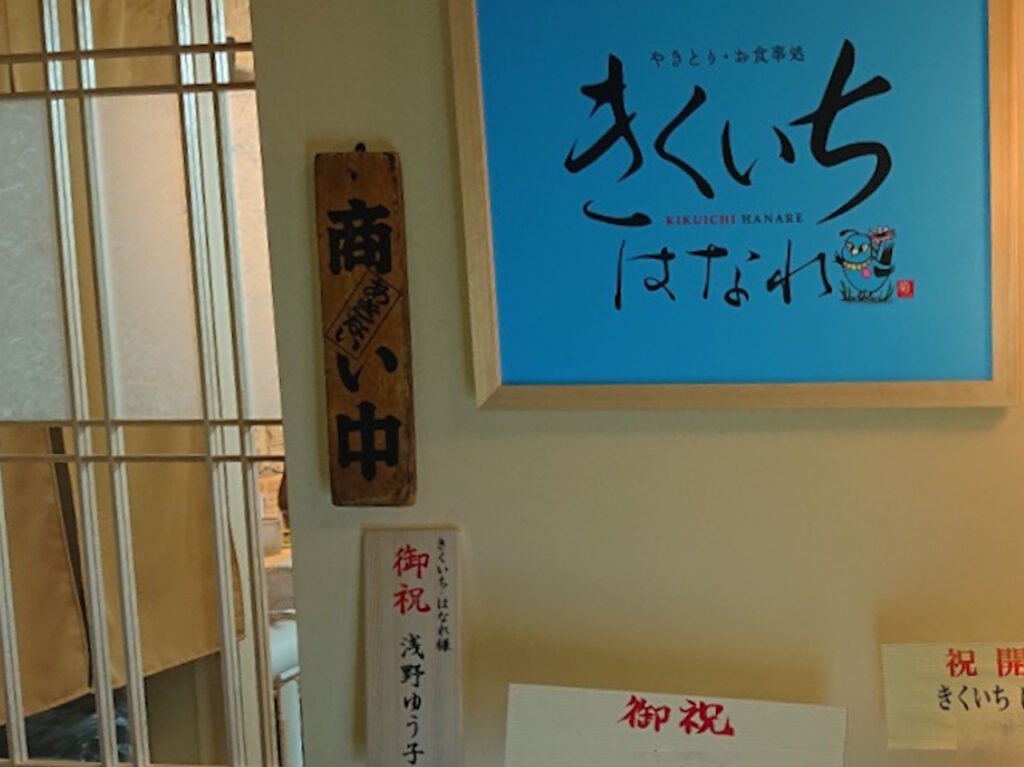 やきとり・お食事処
きくいち
KIKUICHI HANARE
はなれ
菊
商い中
あきない
きくいち・はなれ様
御祝
浅野ゆう子
御祝
祝開
きくいち